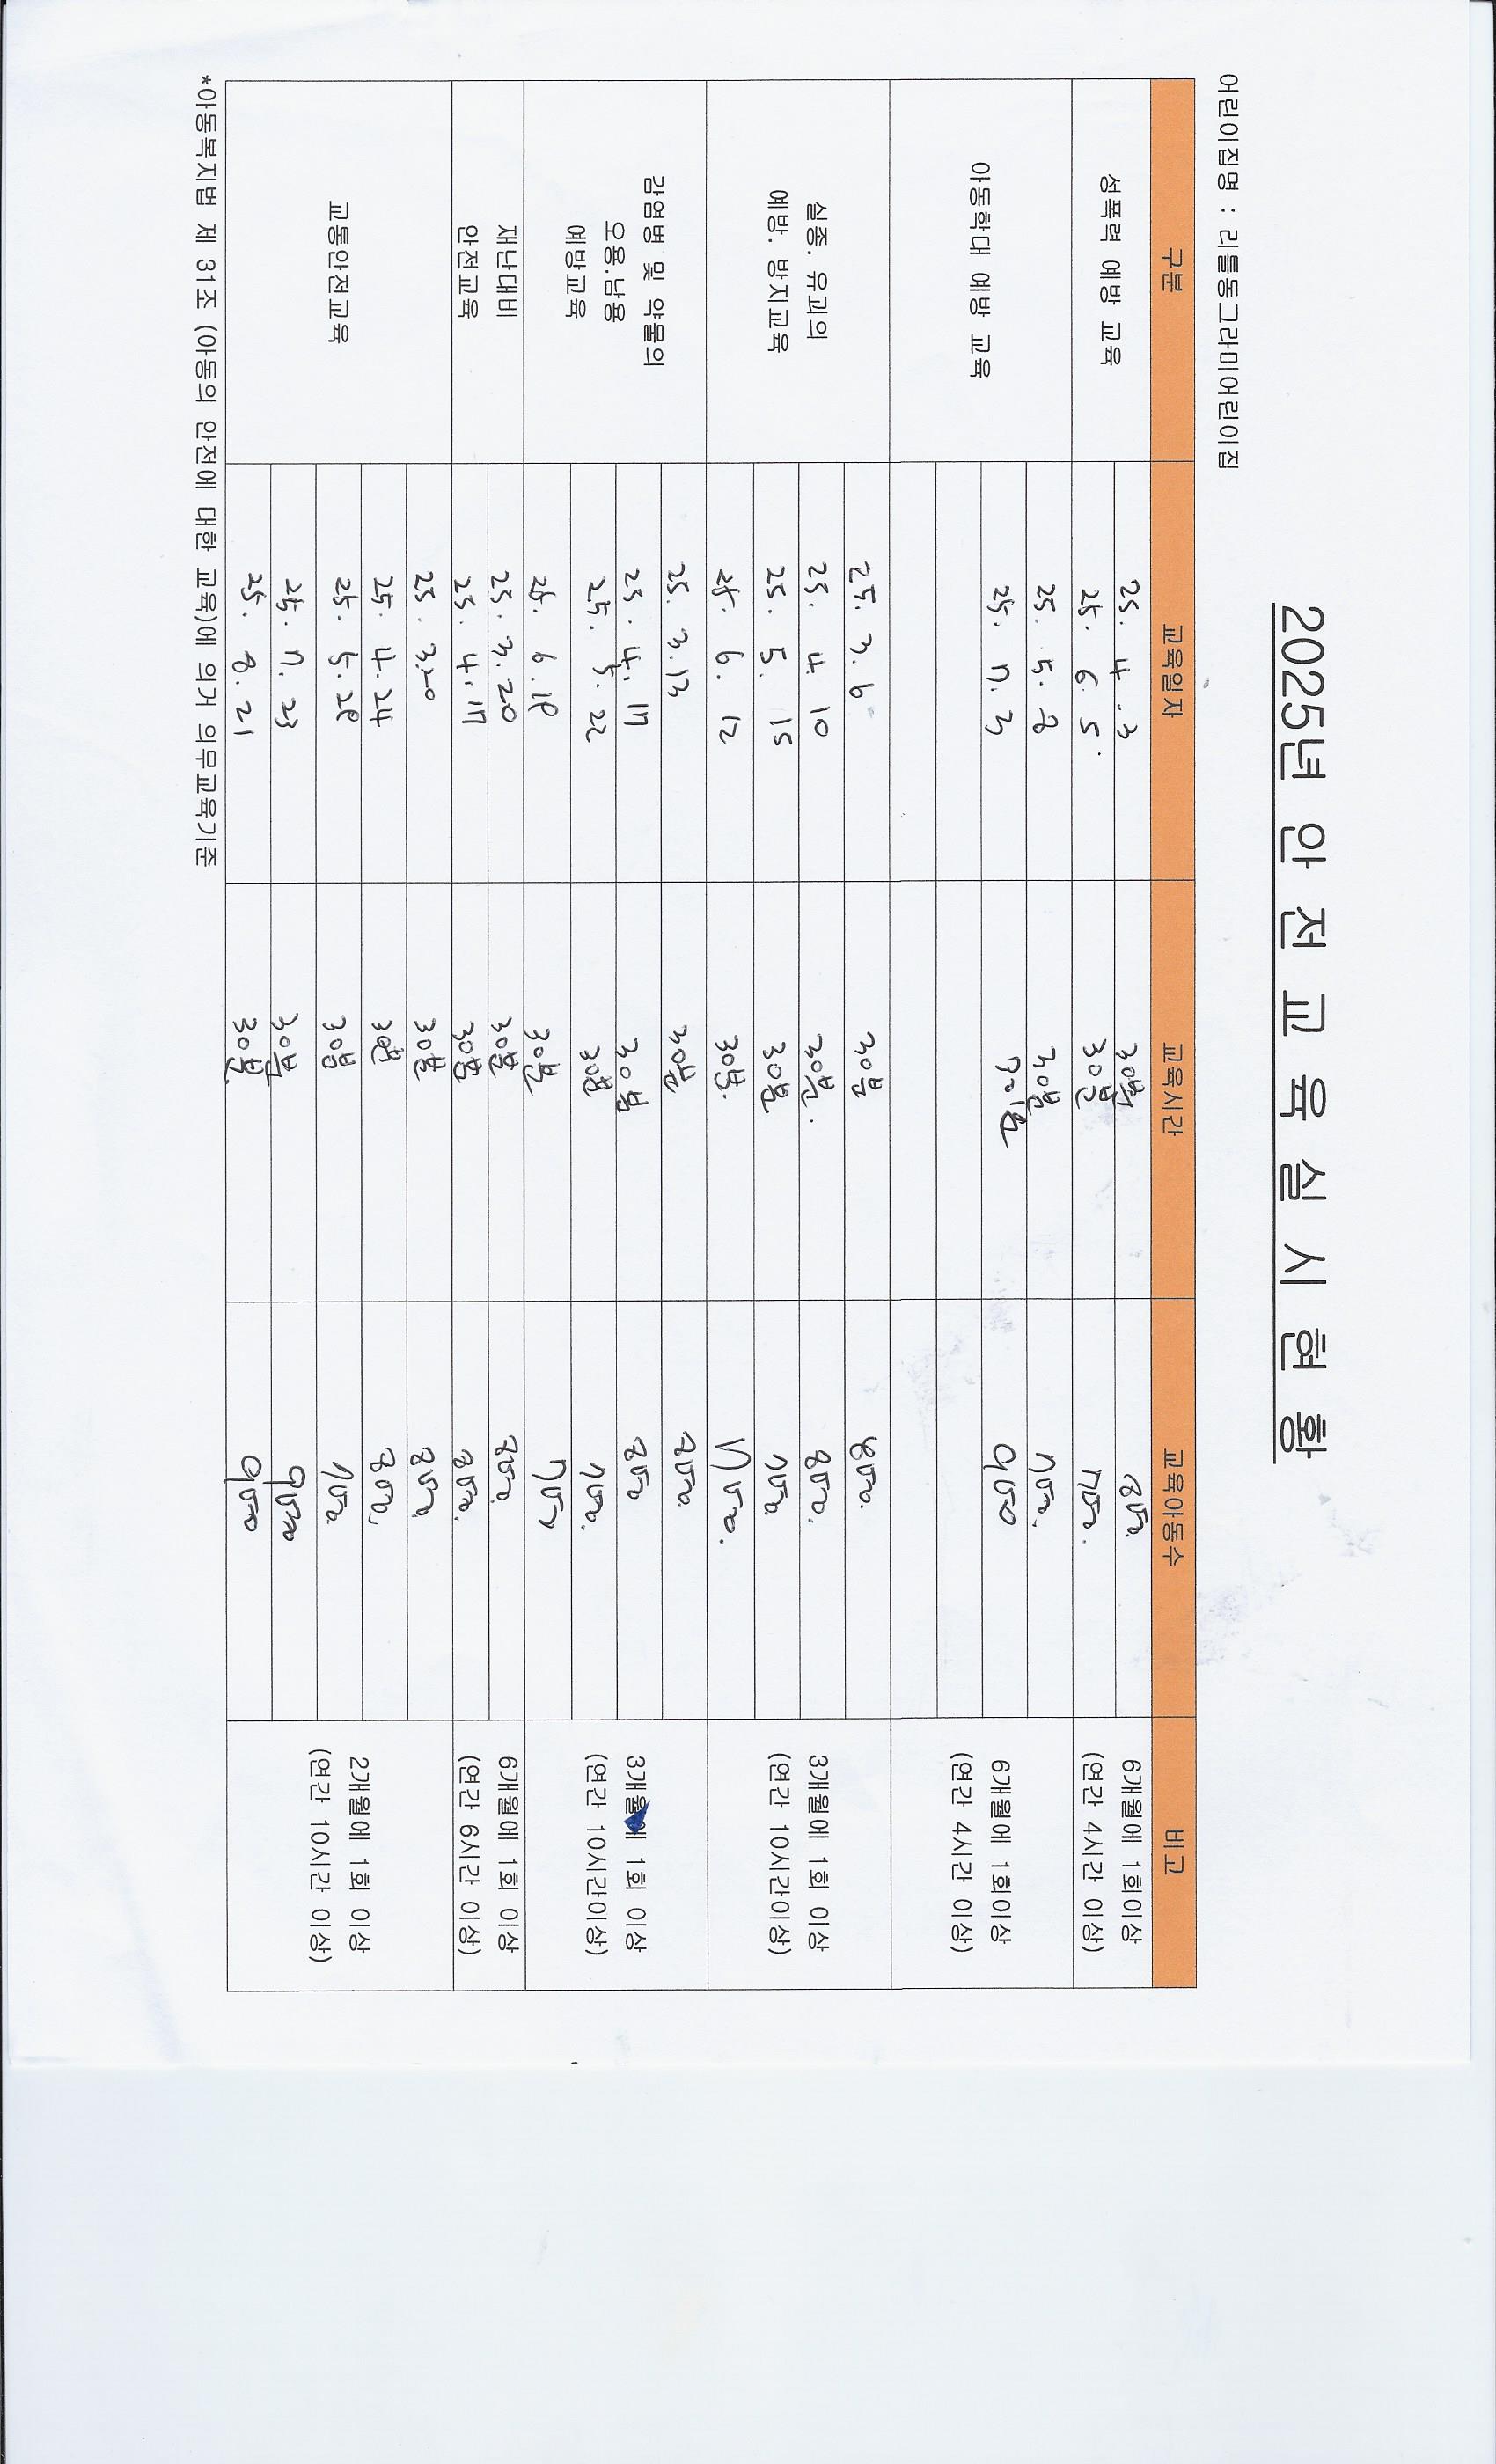 2025년 안 전 교 육 실 시 현 황
어린이집명 : 리틀동그라미어린이집
구분 교육일자 교육시간 교육아동수 비고
성폭력 예방 교육
25. 4. 3 30분 8명
25. 6. 5. 30분 7명.
6개월에 1회이상
(연간 4시간 이상)
아동학대 예방 교육
25. 5. 8 30분 7명.
25. 7. 3 30분 9명
6개월에 1회이상
(연간 4시간 이상)
실종. 유괴의
예방. 방지교육
25. 3. 6 30분 8명.
25. 4. 10 30분. 8명.
25. 5. 15 30분 7명
25. 6. 12 30분. 7명.
3개월에 1회 이상
(연간 10시간이상)
감염병 및 약물의
오용.남용
예방교육
25. 3. 13 30분 8명.
25. 4. 17 30분 8명
25. 5. 22 30분 7명.
25. 6. 19 30분 7명
3개월에 1회 이상
(연간 10시간이상)
재난대비
안전교육
25. 3. 20 30분 8명.
25. 4. 17 30분 8명.
6개월에 1회 이상
(연간 6시간 이상)
교통안전교육
25. 3.20 30분 8명
25. 4. 24 30분 8명.
25. 5. 29 30분 7명
25. 7. 23 30분 9명
25. 8. 21 30분. 9명
2개월에 1회 이상
(연간 10시간 이상)
*아동복지법 제 31조 (아동의 안전에 대한 교육)에 의거 의무교육기준